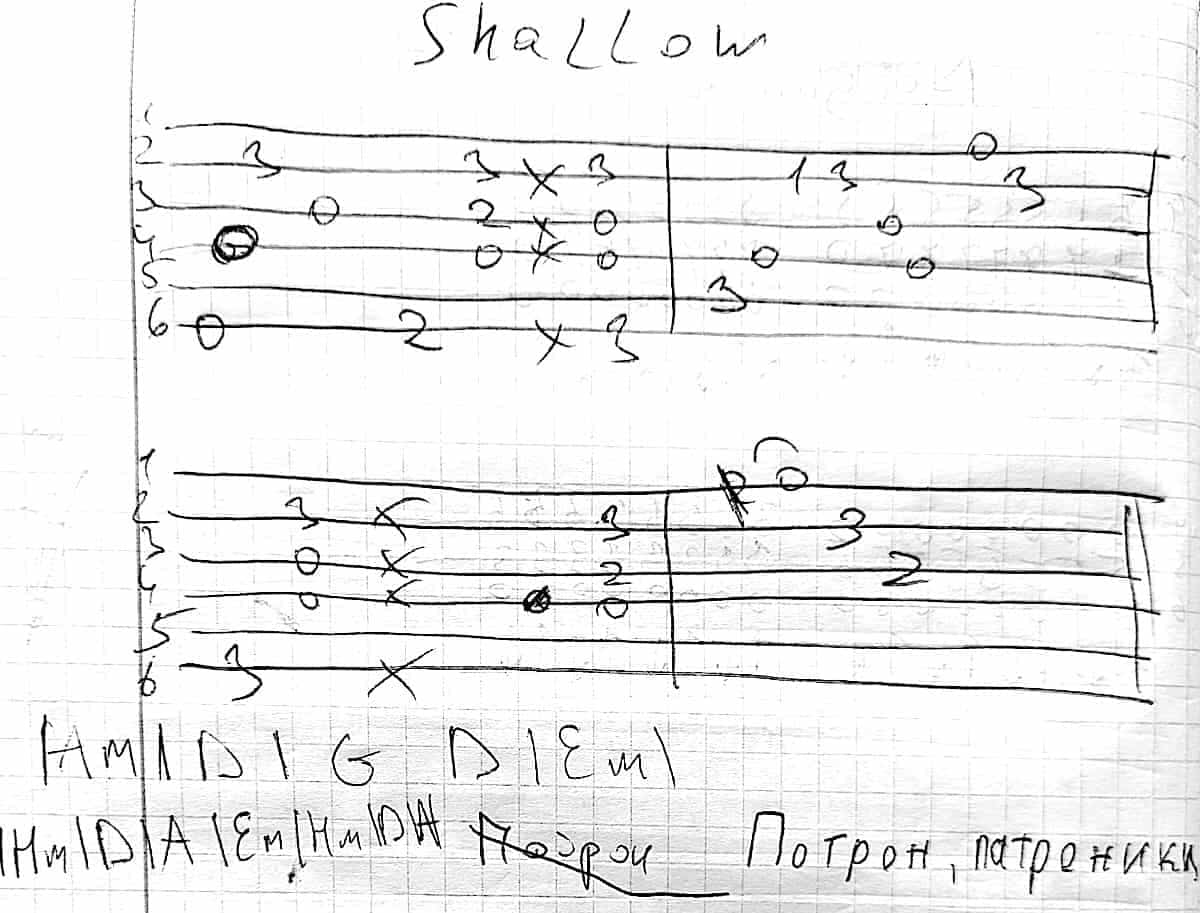 Shallow
1 0
2 3 3 X 3 | 1 3 3
3 0 2 x 0 | 0
4 0 x 0 | 0 0
5 | 3
6 0 2 x 3
1 | 0
2 3 X 3 | 3
3 0 X 2 | 2
4 0 x 0 |
5
6 3 X
|Am| D | G D | Em|
|Hm|D|A|Em|Hm|D Потрон, патроники